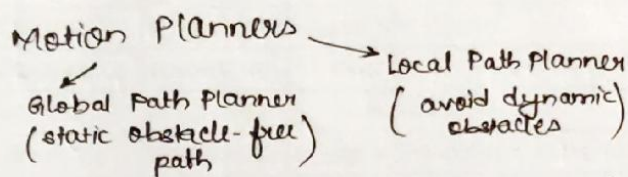 Motion Planners
Global Path Planner
(static obstacle-free
path)
Local Path Planner
(avoid dynamic
obstacles)